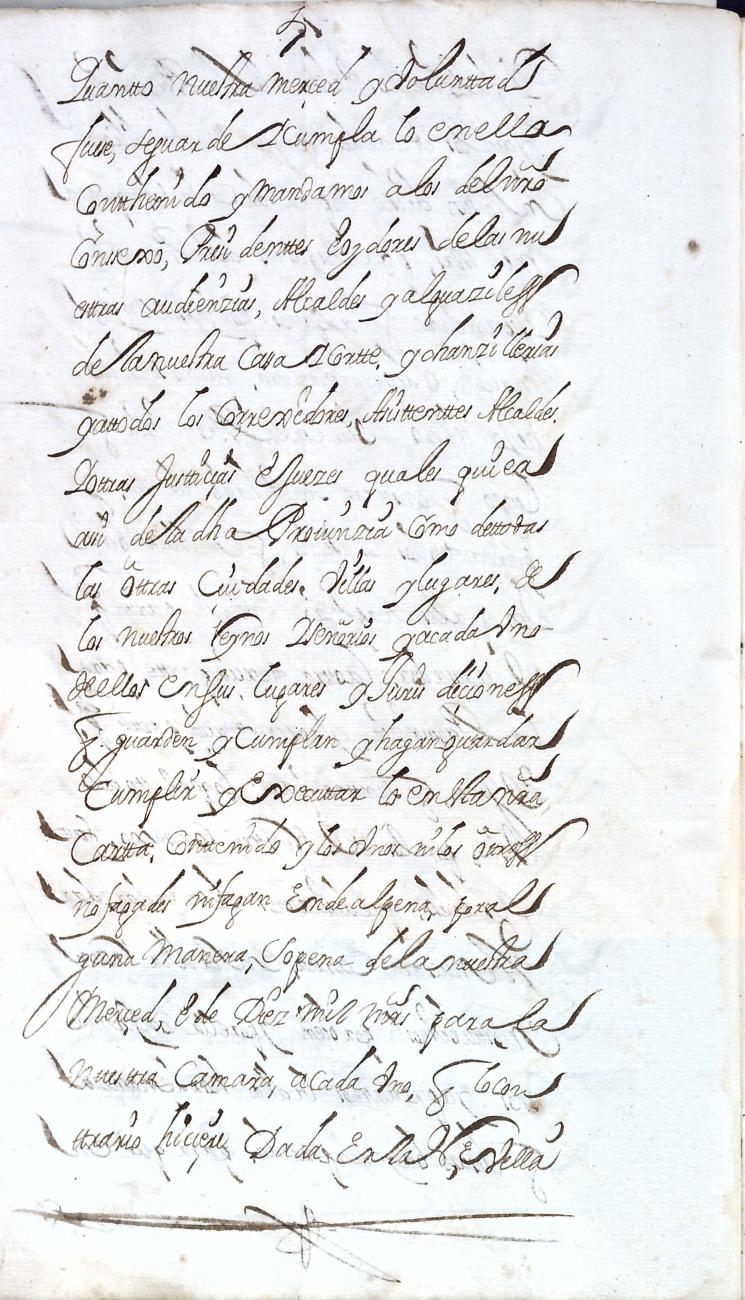 Quantto nuestra merced y Voluntad
fuere, se guarde Y Cumpla lo en ella
Contthenido y mandamos a los del nrō
Consexo, Presidenttes Oydores de las nu
esttras audienzias, Alcaldes y alguaziles
de la nuestra Casa Y Cortte, y chanzillerias
y a ttodos los Correxidores, Asisttenttes Alcaldes
Y ottras Justticias e Juezes quales quiea
asi de la dha Prouinzia como de ttodas
las ottras Ciudades Villas y lugares, de
los nuestros Reynos Y Señorios y a cada Vno
de ellos en sus lugares y Jurisdicciones
q̄ guarden y Cumplan y hagan guardar
Cumplir y Executtar lo en esta nrā
Cartta, Conttenido y los Vnos ni los ottros
no fagades ni fagan Ende al pena, por al
guna Manera, So pena de la nuestra
Merced, E de Diez mil mrs para la
Nuesttra Camara, a cada Vno, q̄ lo con
ttrario hiciere Dada En la V, E Villa